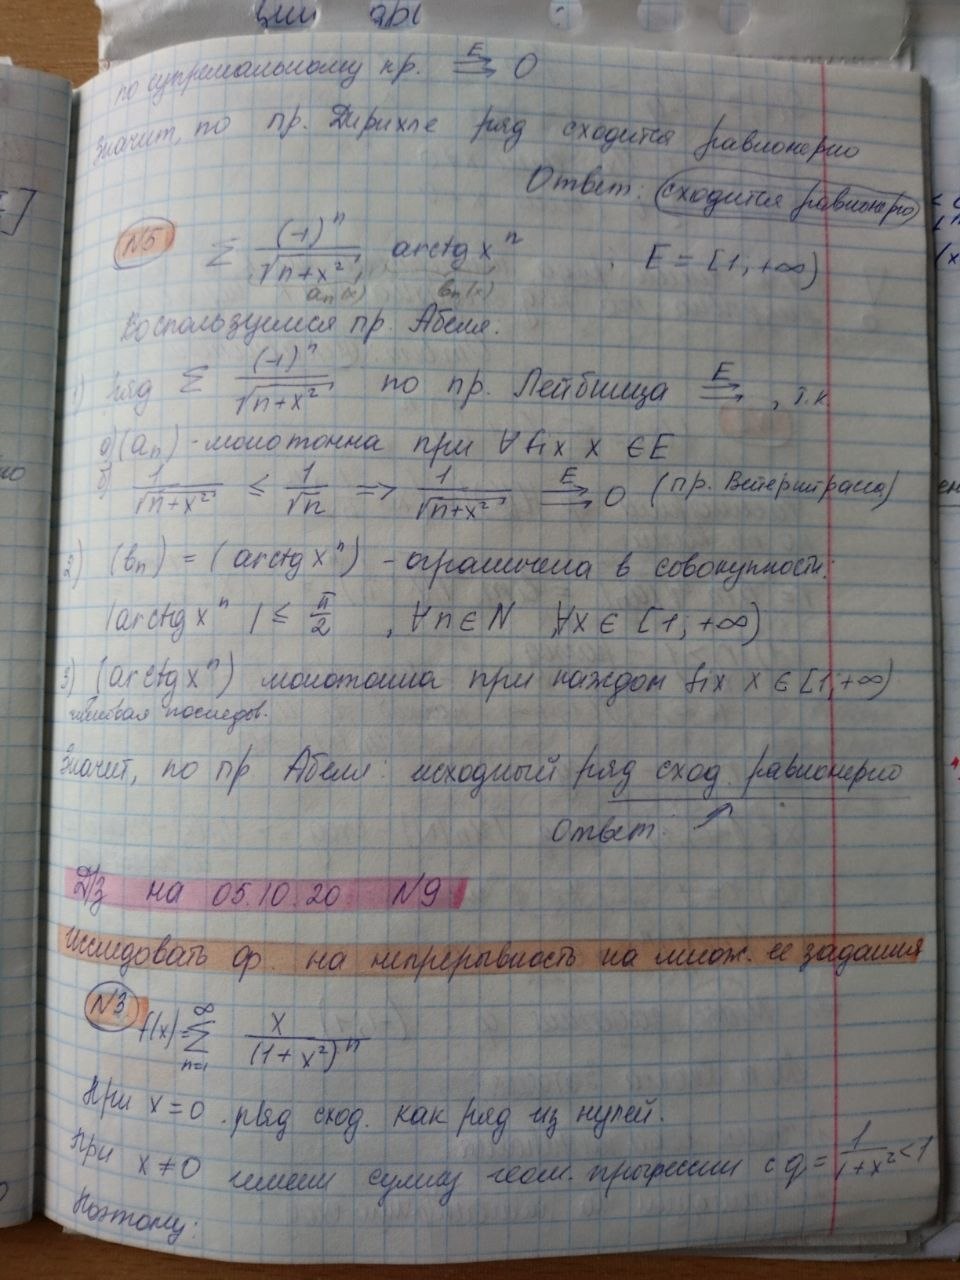 ции
по супремальному пр. E ⇉ 0
Значит, по пр. Дирихле ряд сходится равномерно
Ответ: сходится равномерно
N5 Σ (-1)^n / √(n+x²) arctg x^n ; E = [1, +∞)
a_n(x) b_n(x)
Воспользуемся пр. Абеля.
1) Ряд Σ (-1)^n / √(n+x²) по пр. Лейбница E ⇉ , т.к
а) (a_n) - монотонна при ∀ fix x ∈ E
б) 1/√(n+x²) ≤ 1/√n => 1/√(n+x²) E ⇉ 0 (пр. Вейерштрасса)
2) (b_n) = (arctg x^n) - ограничена в совокупности:
|arctg x^n| ≤ π/2 , ∀n ∈ N , ∀x ∈ [1; +∞)
3) (arctg x^n) монотонна при каждом fix x ∈ [1, +∞)
числовая последов.
Значит, по пр. Абеля: исходный ряд сход. равномерно
Ответ: ↗
Д/з на 05.10.20 N9
Исследовать ф. на непрерывность на множ. ее задания
N3 f(x) = Σ_{n=1}^{∞} x / (1+x²)^n
При x=0 ряд сход. как ряд из нулей.
При x≠0 имеем сумму геом. прогрессии с q = 1/(1+x²) < 1
Поэтому: